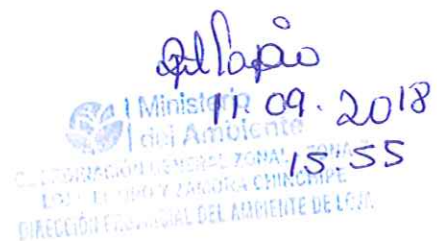 11.09.2018
Ministerio
del Ambiente
15:55
COORDINACIÓN GENERAL ZONAL - ZONA 7
LOJA, EL ORO Y ZAMORA CHINCHIPE
DIRECCIÓN PROVINCIAL DEL AMBIENTE DE LOJA